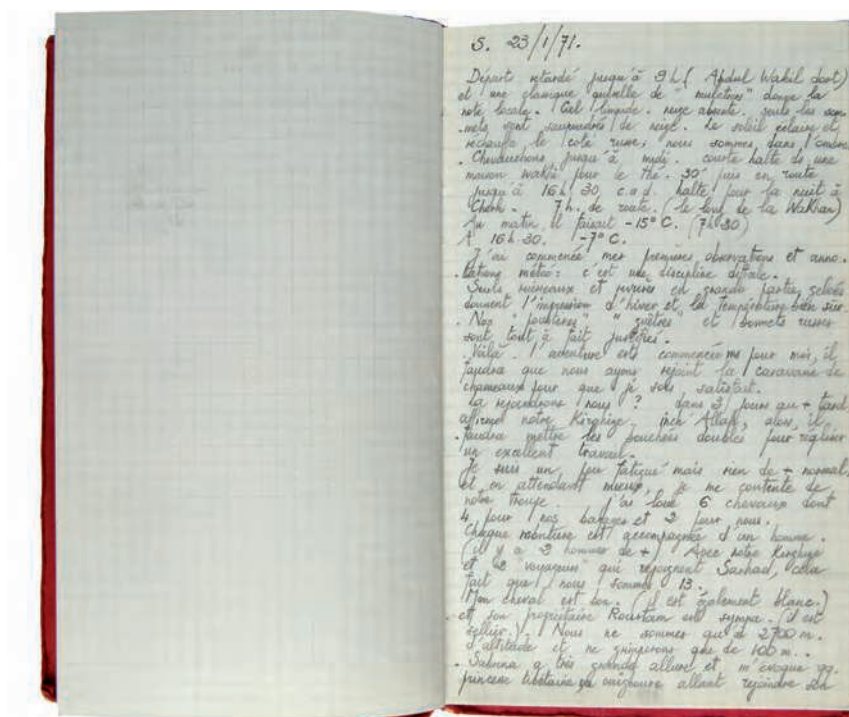 S. 23/1/71.
Départ retardé jusqu'à 9 h ( Abdul Wakil dort)
et une classique querelle de "muletiers" donne la
note locale. Ciel limpide. neige absente. seuls les som-
mets sont saupoudrés de neige. Le soleil éclaire et
réchauffe le coté russe; nous sommes dans l'ombre
. Chevauchons jusqu'à midi. courte halte ds une
maison wakhi pour le thé. 30' puis en route
jusqu'à 16 h 30 c.a.d. halte pour la nuit à
7 h. de route. (le long de la Wakhan)
Au matin il faisait -15°C. (7h30)
A 16h30. -7°C.
J'ai commencé mes premières observations et anno-
tations météo: c'est une discipline
Seuls ruisseaux et rivières en grande partie gelés
donnent l'impression d'hiver et la température bien sûr.
. Nos "guêtres" et bonnets russes
sont tout à fait justifiés.
. Voilà. l'aventure est commencée ms pour moi, il
faudra que nous ayons rejoint la caravane de
chameaux pour que je sois satisfait.
La rejoindrons nous ? dans 3 jours au + tard
affirme notre Kirghize. inch'Allah, alors, il
faudra mettre les bouchées doubles pour
un excellent travail.
Je suis un peu fatigué mais rien de + normal,
et en attendant mieux, je me contente de
notre troupe. J'ai loué 6 chevaux dont
4 pour nos bagages et 2 pour nous.
Chaque monture est accompagnée d'un homme.
(il y a 2 hommes de +) Avec notre Kirghize
et 2 "voyageurs" qui rejoignent Sarhad, cela
fait que nous sommes 13.
Mon cheval est bon. (il est également blanc.)
et son propriétaire Roustam est sympa. (il est
sellier.) Nous ne sommes qu'à 2700 m.
d'altitude et ne grimperons que de 100 m..
. Sabrina a très grande allure et m'évoque qq.
princesse tibétaine ou ouighoure allant rejoindre son